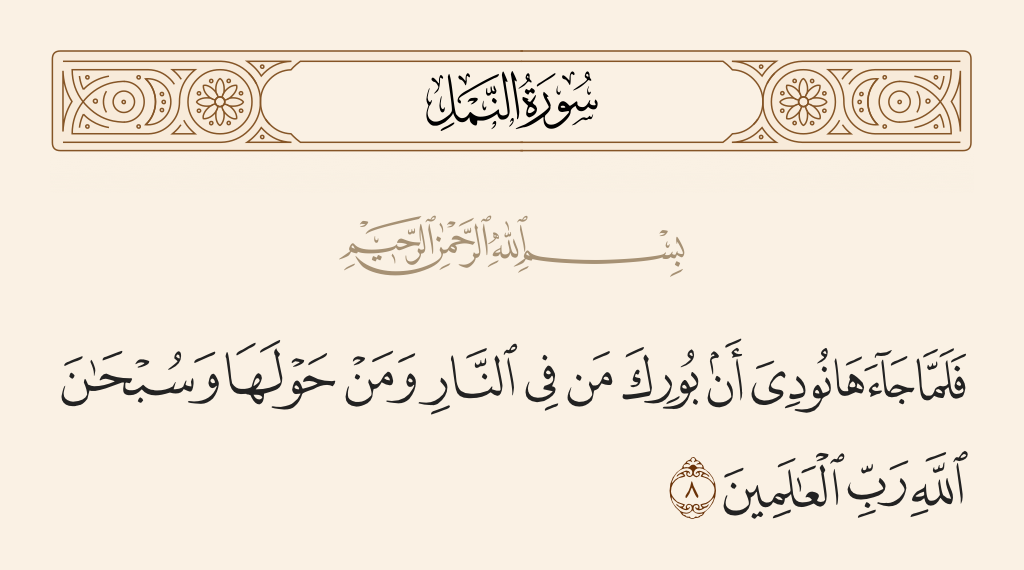 سُورَةُ النَّمْلِ
بِسْمِ ٱللَّهِ ٱلرَّحْمَٰنِ ٱلرَّحِيمِ
فَلَمَّا جَآءَهَا نُودِىَ أَنۢ بُورِكَ مَن فِى ٱلنَّارِ وَمَنْ حَوْلَهَا وَسُبْحَٰنَ
ٱللَّهِ رَبِّ ٱلْعَٰلَمِينَ ٨